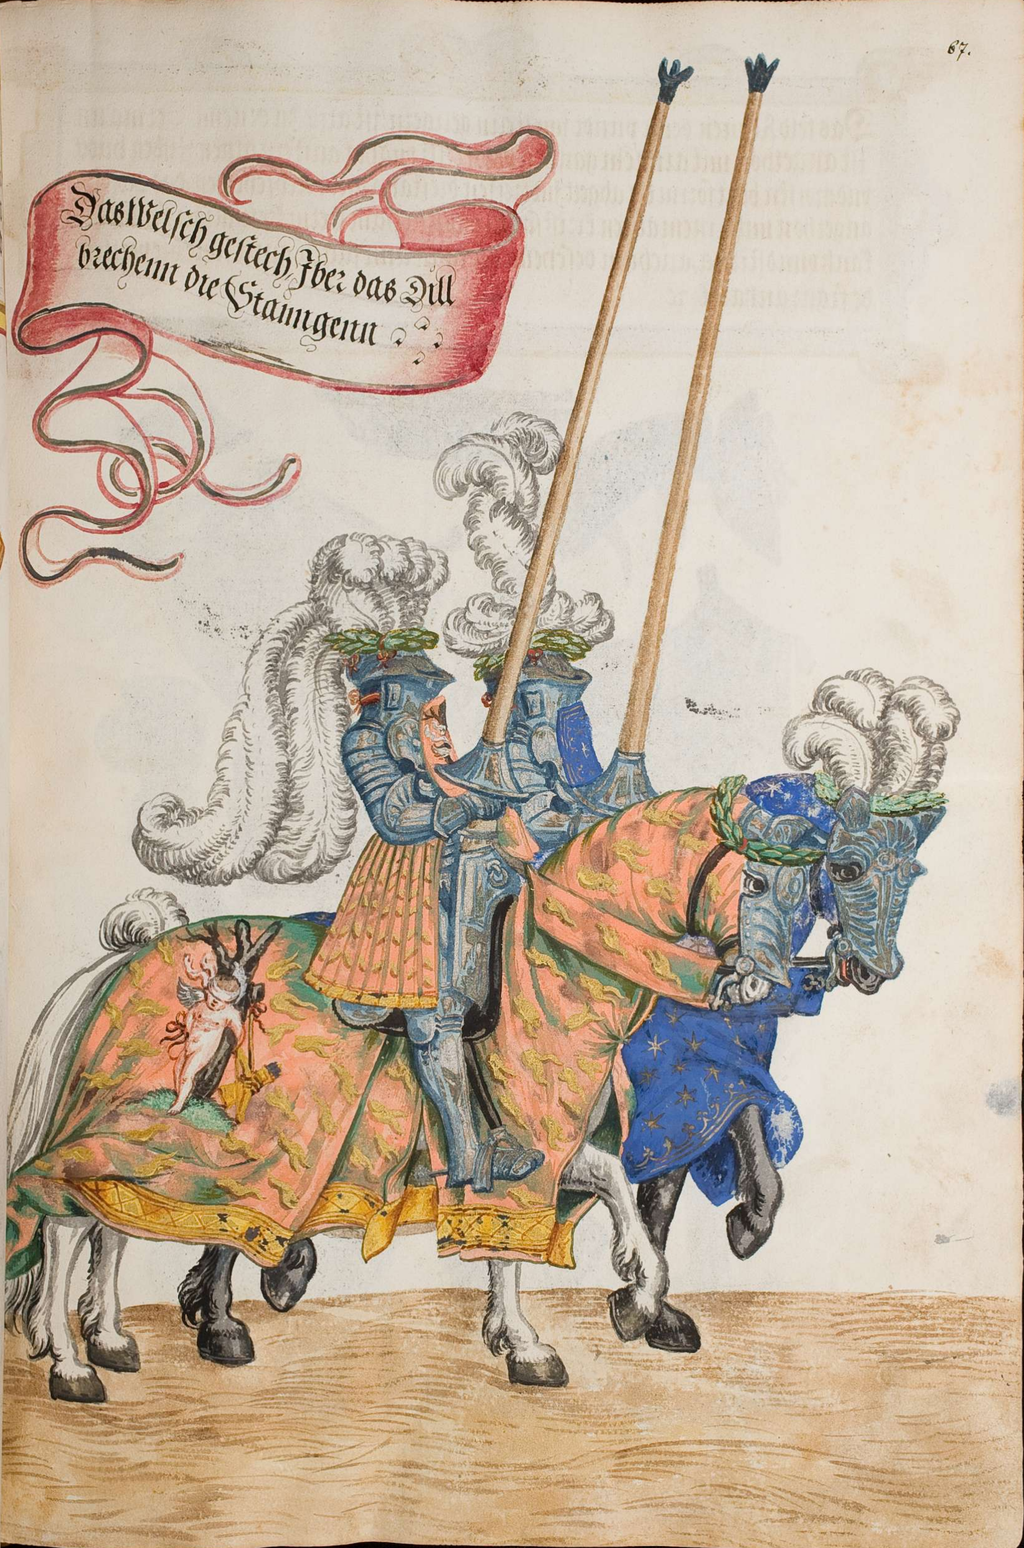 67.
Das Welsch gestech Jber das Dill
brechenn die Stanngenn